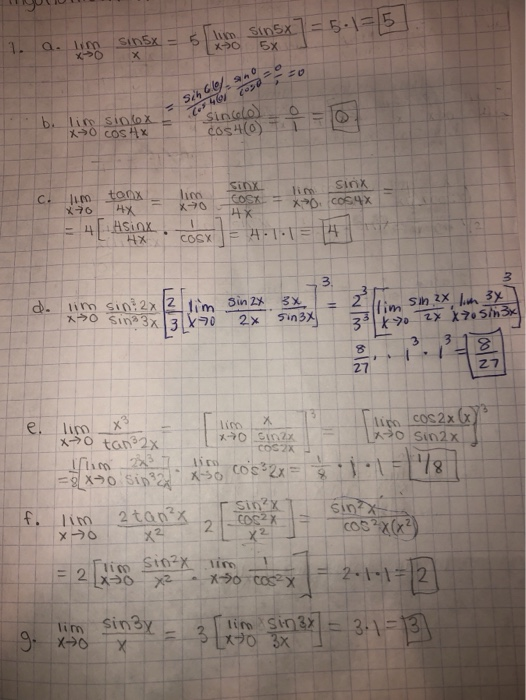 1. a. lim x→0 sin5x/x = 5 [lim x→0 sin5x/5x] = 5·1 = 5
= sin6(0)/cos4(0) = sin0/cos0 = 0/1 = 0
b. lim x→0 sin6x/cos4x = sin6(0)/cos4(0) = 0/1 = 0
c. lim x→0 tanx/4x = lim x→0 (sinx/cosx)/4x = lim x→0 sinx/cos4x =
= 4[4sinx/4x · 1/cosx] = 4·1·1 = 4
d. lim x→0 sin³2x/sin³3x [2/3 [lim x→0 sin2x/2x · 3x/sin3x]³ = 2³/3³ [lim x→0 sin2x/2x · lim x→0 3x/sin3x]³
8/27 · 1³ · 1³ = 8/27
e. lim x→0 x³/tan³2x = [lim x→0 x/(sin2x/cos2x)]³ = [lim x→0 cos2x(x)/sin2x]³
= 1/8 [lim x→0 2x³/sin³2x] · lim x→0 cos³2x = 1/8 · 1 · 1 = 1/8
f. lim x→0 2tan²x/x² 2[(sin²x/cos²x)/x²] = sin²x/cos²x(x²)
= 2[lim x→0 sin²x/x² · lim x→0 1/cos²x] = 2·1·1 = 2
g. lim x→0 sin3x/x = 3[lim x→0 sin3x/3x] = 3·1 = 3